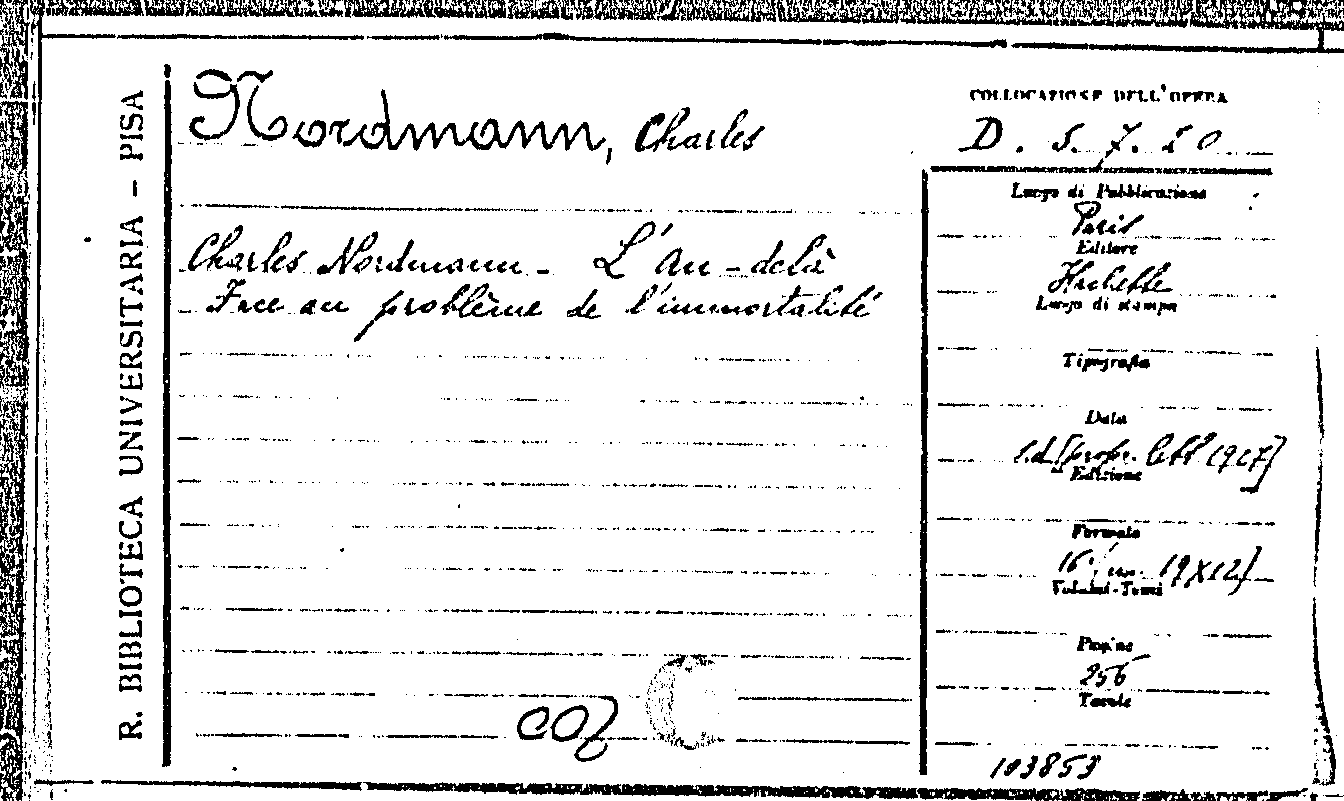 R. BIBLIOTECA UNIVERSITARIA - PISA
Nordmann, Charles
Charles Nordmann - L'Au-delà
Face au problème de l'immortalité
COLLOCAZIONE DELL'OPERA
D. 5. 7. 20
Luogo di Pubblicazione
Paris
Editore
Hachette
Luogo di stampa
Tipografia
Data
s.d. [propr. lett. 1927]
Edizione
Formato
16° [cm. 19x12]
Volumi-Tomi
Pagine
256
Tavole
103853